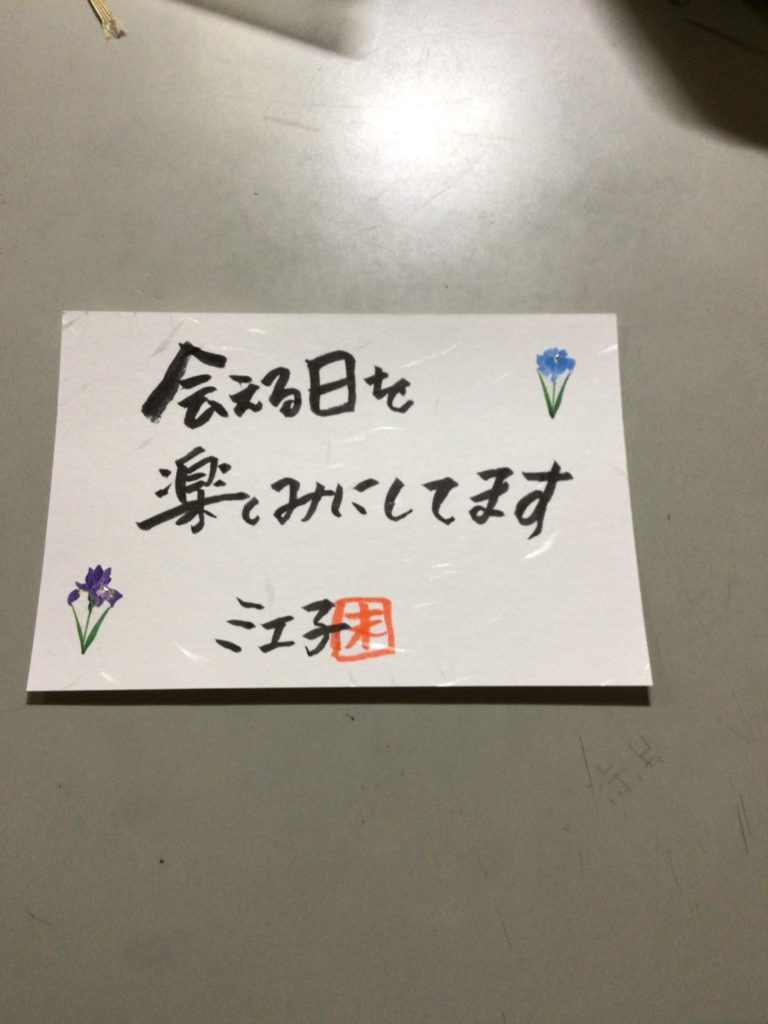 会える日を
楽しみにしてます
ミエ子